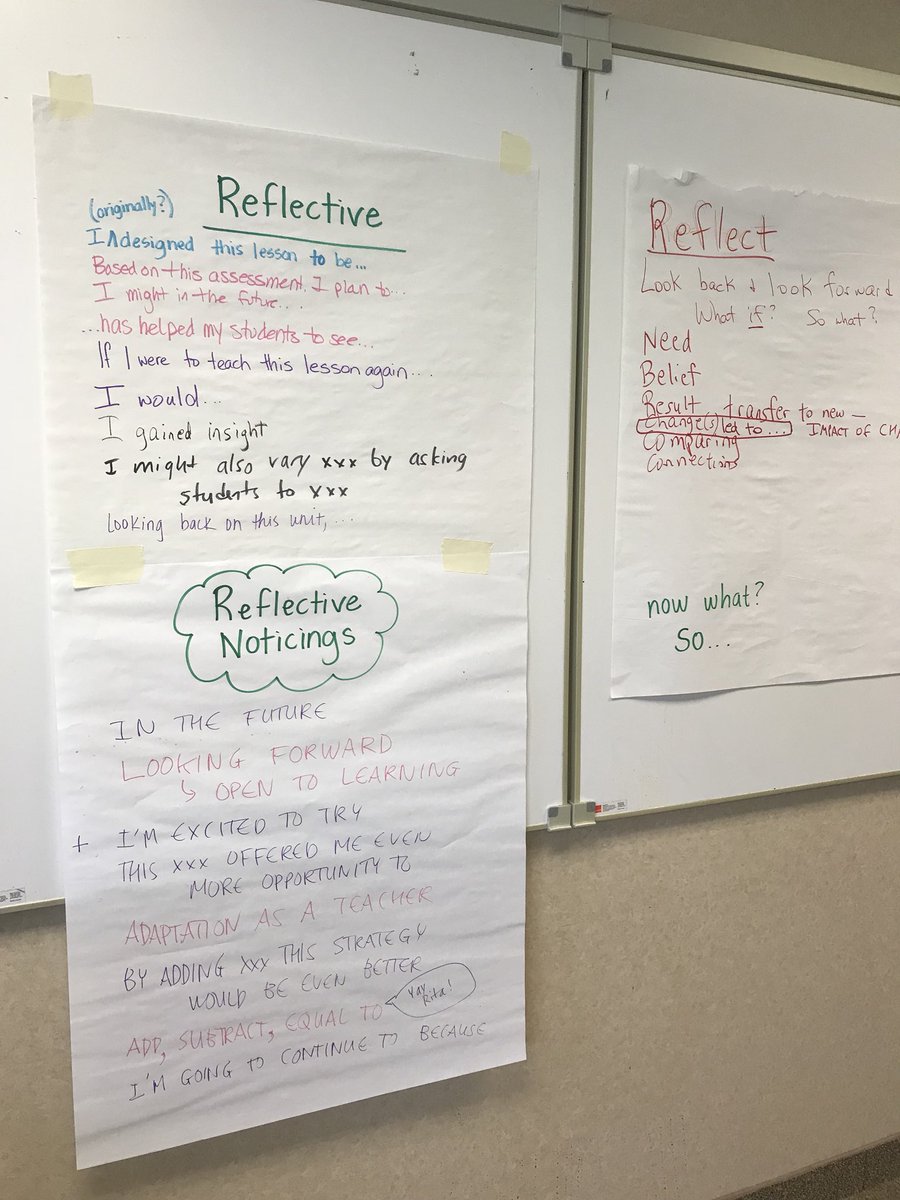 Reflective
(originally?)
I ∧ designed this lesson to be...
Based on this assessment, I plan to...
I might in the future...
...has helped my students to see...
If I were to teach this lesson again...
I would...
I gained insight
I might also vary xxx by asking
students to xxx
looking back on this unit,...
Reflective
Noticings
IN THE FUTURE
LOOKING FORWARD
↳ OPEN TO LEARNING
+ I'M EXCITED TO TRY
THIS XXX OFFERED ME EVEN
MORE OPPORTUNITY TO
ADAPTATION AS A TEACHER
BY ADDING XXX THIS STRATEGY
WOULD BE EVEN BETTER
Yay
Rita!
ADD, SUBTRACT, EQUAL TO
I'M GOING TO CONTINUE TO BECAUSE
Reflect
Look back & look forward
What if? So what?
Need
Belief
Result transfer to new —
Change(s) led to... IMPACT OF
Comparing
Connections
now what?
So...